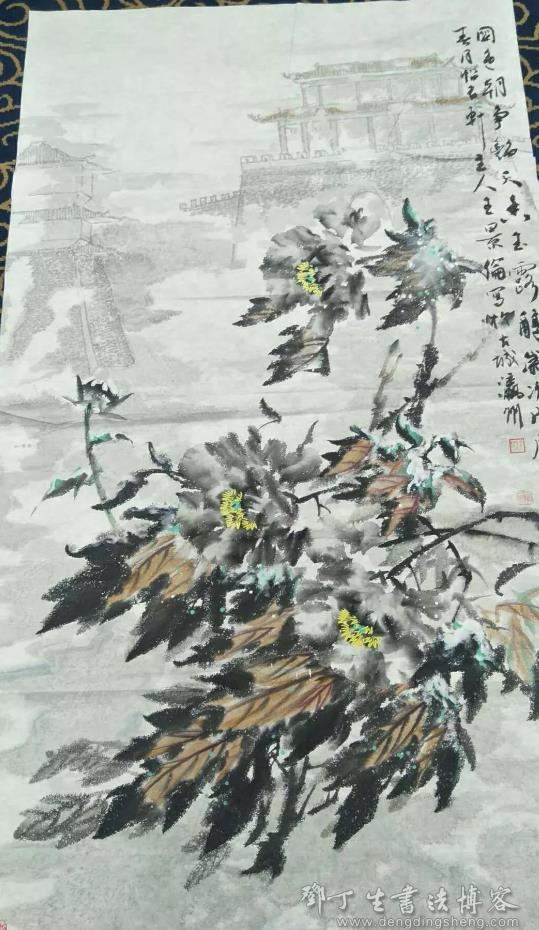 国色朝争艳天香玉露醉
春月怡石轩主人王景倫写於古城瀛州
鄧丁生書法博客
www.dengdingsheng.com